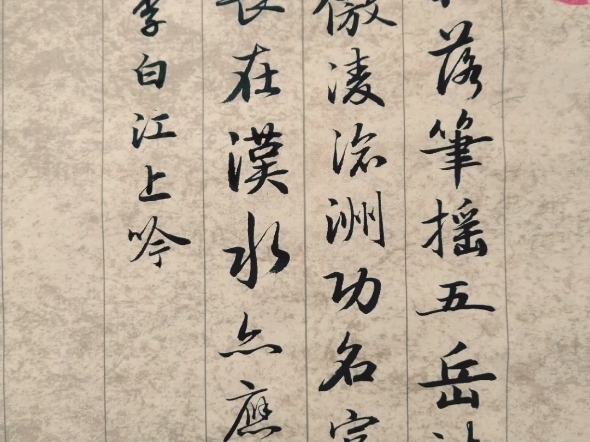 落筆摇五岳
傲凌滄洲功名富
長在漢水亦應
李白江上吟